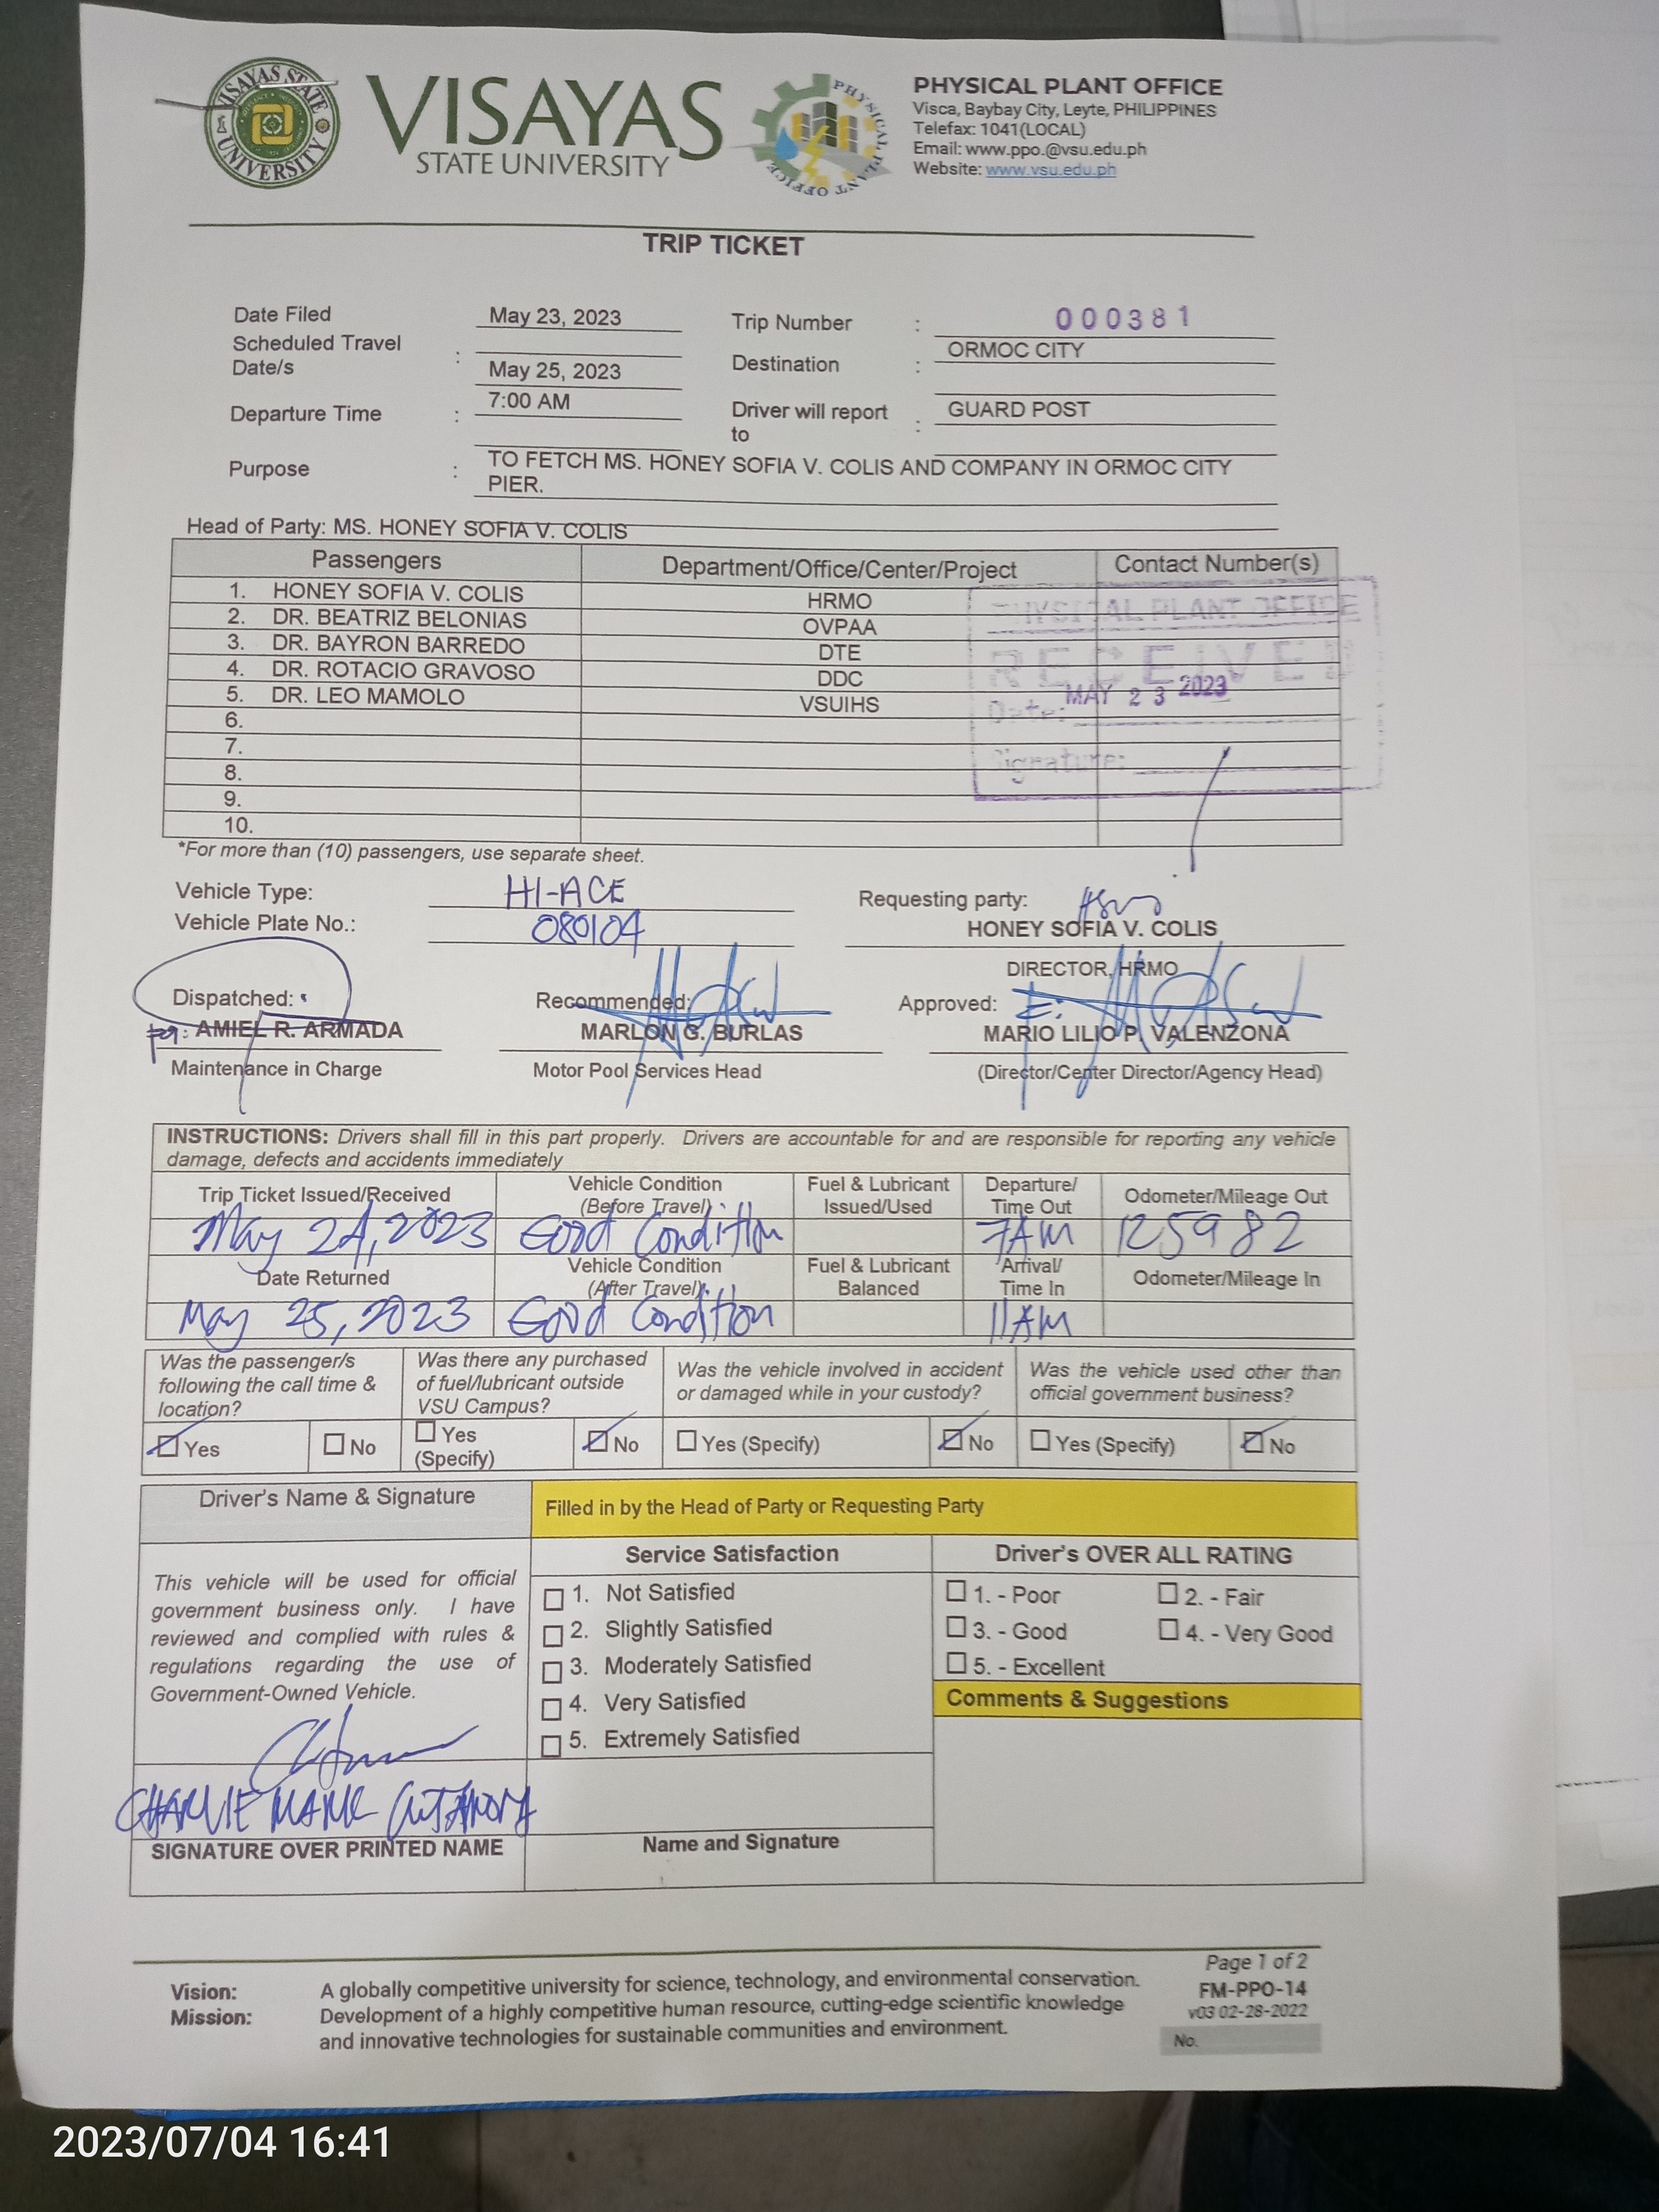 VISAYAS STATE UNIVERSITY
VISAYAS
STATE UNIVERSITY
PHYSICAL PLANT OFFICE
PHYSICAL PLANT OFFICE
Visca, Baybay City, Leyte, PHILIPPINES
Telefax: 1041(LOCAL)
Email: www.ppo.@vsu.edu.ph
Website: www.vsu.edu.ph
TRIP TICKET
Date Filed May 23, 2023 Trip Number : 000381
Scheduled Travel Date/s : May 25, 2023 Destination : ORMOC CITY
Departure Time : 7:00 AM Driver will report to : GUARD POST
Purpose : TO FETCH MS. HONEY SOFIA V. COLIS AND COMPANY IN ORMOC CITY
PIER.
Head of Party: MS. HONEY SOFIA V. COLIS
Passengers Department/Office/Center/Project Contact Number(s)
1. HONEY SOFIA V. COLIS HRMO
2. DR. BEATRIZ BELONIAS OVPAA
3. DR. BAYRON BARREDO DTE
4. DR. ROTACIO GRAVOSO DDC
5. DR. LEO MAMOLO VSUIHS
6.
7.
8.
9.
10.
PHYSICAL PLANT OFFICE
RECEIVED
Date: MAY 23 2023
Signature:
*For more than (10) passengers, use separate sheet.
Vehicle Type: HI-ACE Requesting party:
Vehicle Plate No.: 080104 HONEY SOFIA V. COLIS
DIRECTOR, HRMO
Dispatched: Recommended: Approved:
for: AMIEL R. ARMADA MARLON G. BURLAS MARIO LILIO P. VALENZONA
Maintenance in Charge Motor Pool Services Head (Director/Center Director/Agency Head)
INSTRUCTIONS: Drivers shall fill in this part properly. Drivers are accountable for and are responsible for reporting any vehicle
damage, defects and accidents immediately
Trip Ticket Issued/Received Vehicle Condition (Before Travel) Fuel & Lubricant Issued/Used Departure/ Time Out Odometer/Mileage Out
May 24, 2023 Good Condition 7AM 125982
Date Returned Vehicle Condition (After Travel) Fuel & Lubricant Balanced Arrival/ Time In Odometer/Mileage In
May 25, 2023 Good Condition 11AM
Was the passenger/s following the call time & location? Was there any purchased of fuel/lubricant outside VSU Campus? Was the vehicle involved in accident or damaged while in your custody? Was the vehicle used other than official government business?
Yes No Yes (Specify) No Yes (Specify) No Yes (Specify) No
Driver's Name & Signature Filled in by the Head of Party or Requesting Party
This vehicle will be used for official
government business only. I have
reviewed and complied with rules &
regulations regarding the use of
Government-Owned Vehicle.
CHARLIE MARK
SIGNATURE OVER PRINTED NAME
Service Satisfaction
1. Not Satisfied
2. Slightly Satisfied
3. Moderately Satisfied
4. Very Satisfied
5. Extremely Satisfied
Name and Signature
Driver's OVER ALL RATING
1. - Poor 2. - Fair
3. - Good 4. - Very Good
5. - Excellent
Comments & Suggestions
Vision: A globally competitive university for science, technology, and environmental conservation.
Mission: Development of a highly competitive human resource, cutting-edge scientific knowledge
and innovative technologies for sustainable communities and environment.
Page 1 of 2
FM-PPO-14
v03 02-28-2022
No.
2023/07/04 16:41